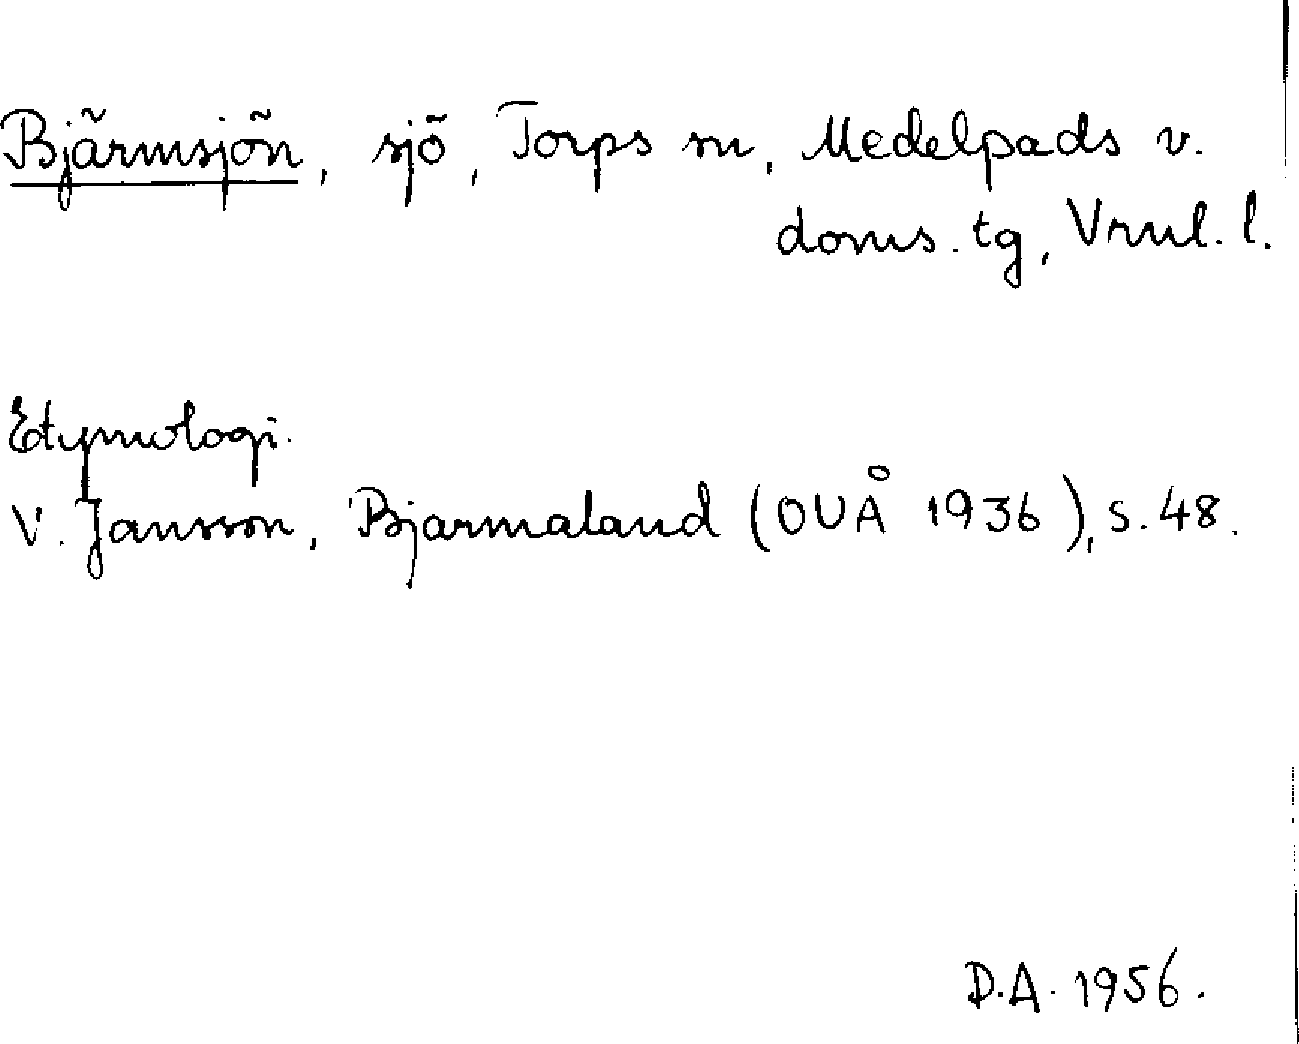 Bjärmsjön, sjö, Torps sn, Medelpads v.
doms. tg, Vrnl. l.
Etymologi.
V. Jansson, Bjarmaland (OUÅ 1936), s. 48.
D.A. 1956.